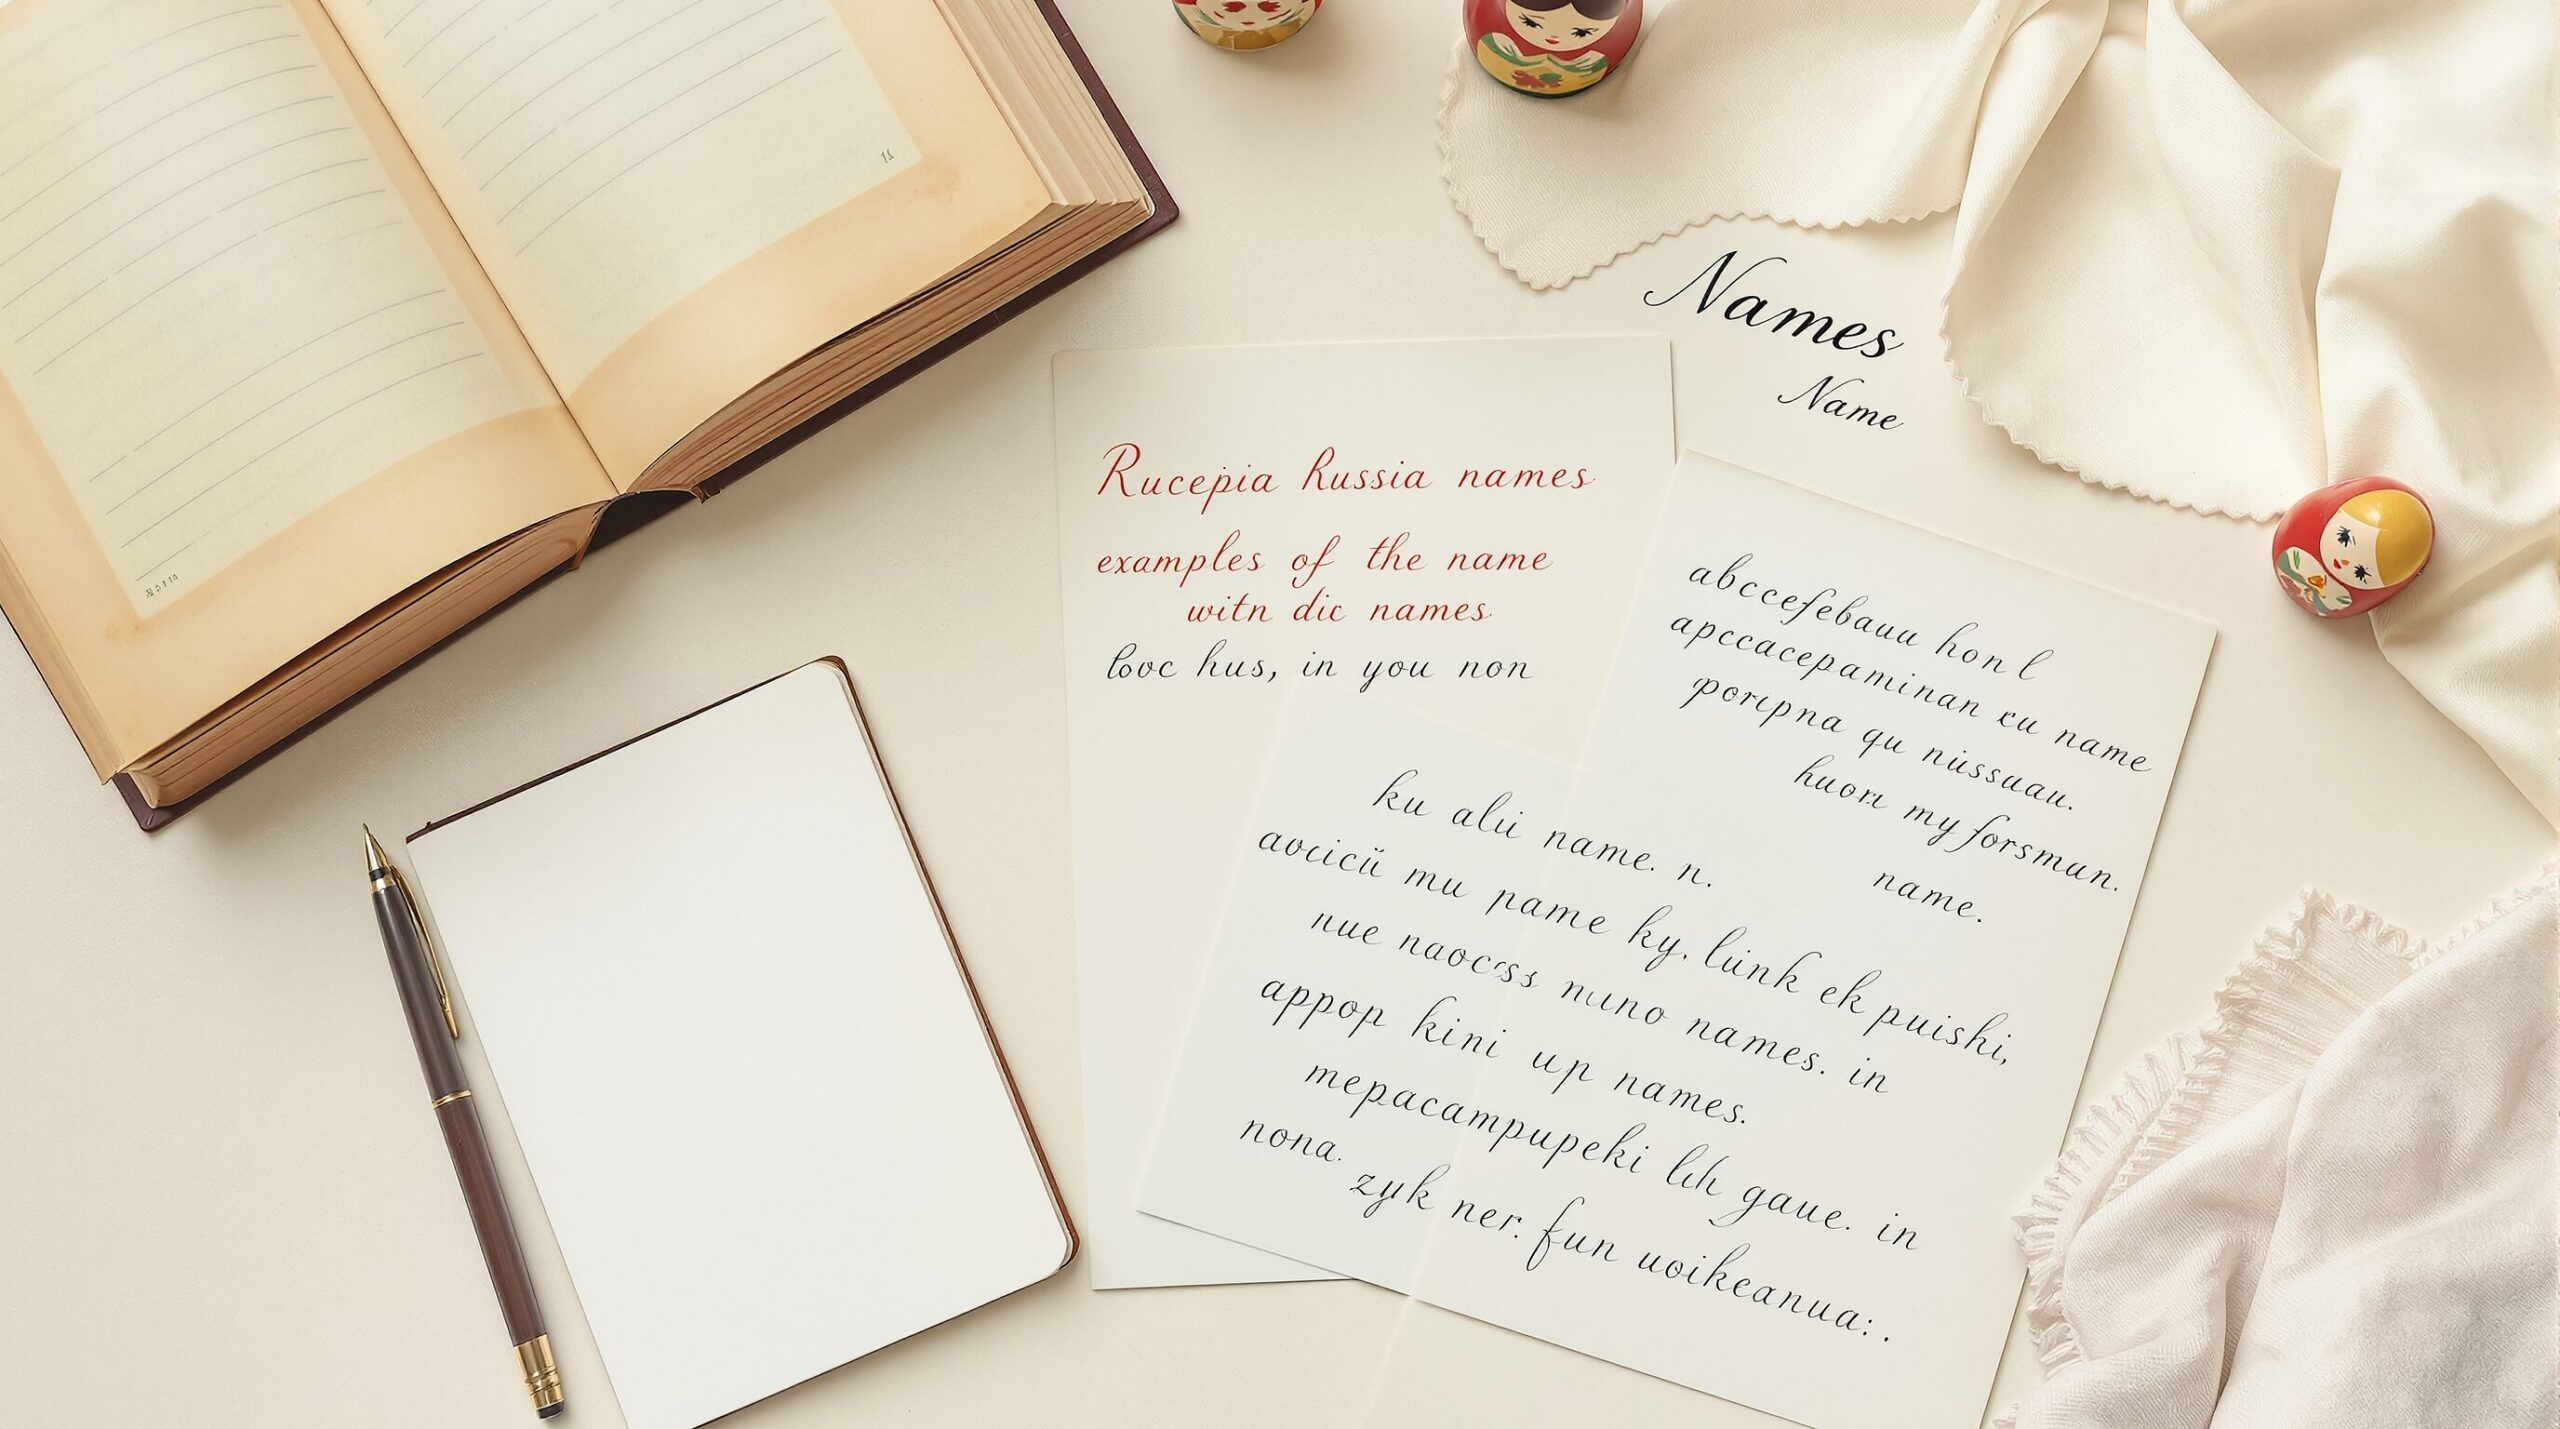 Names
Name
Rucepia Russia names
examples of the name
witn dic names
love hus, in you non
abccefebauu hon l
apccacepaminan cu name
poripna qu nussuau.
huon my forsmun.
name.
ku alii name. n.
avcicü mu pame ky. lünk ek puishi,
nue naocss nuno names. in
appop kini up names.
mepacampupeki lih gaue. in
nona.
zyk ner. fun uoikeanua:.